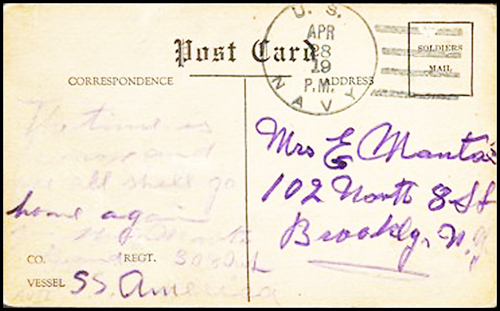 Post Card
U.S.
APR
28
19
P.M.
NAVY
SOLDIERS
MAIL
CORRESPONDENCE
ADDRESS
The time is
and
all shall go
home again
Mrs E Manta
102 North 8 St
Brooklyn, N.Y
CO.
REGT.
VESSEL SS. America